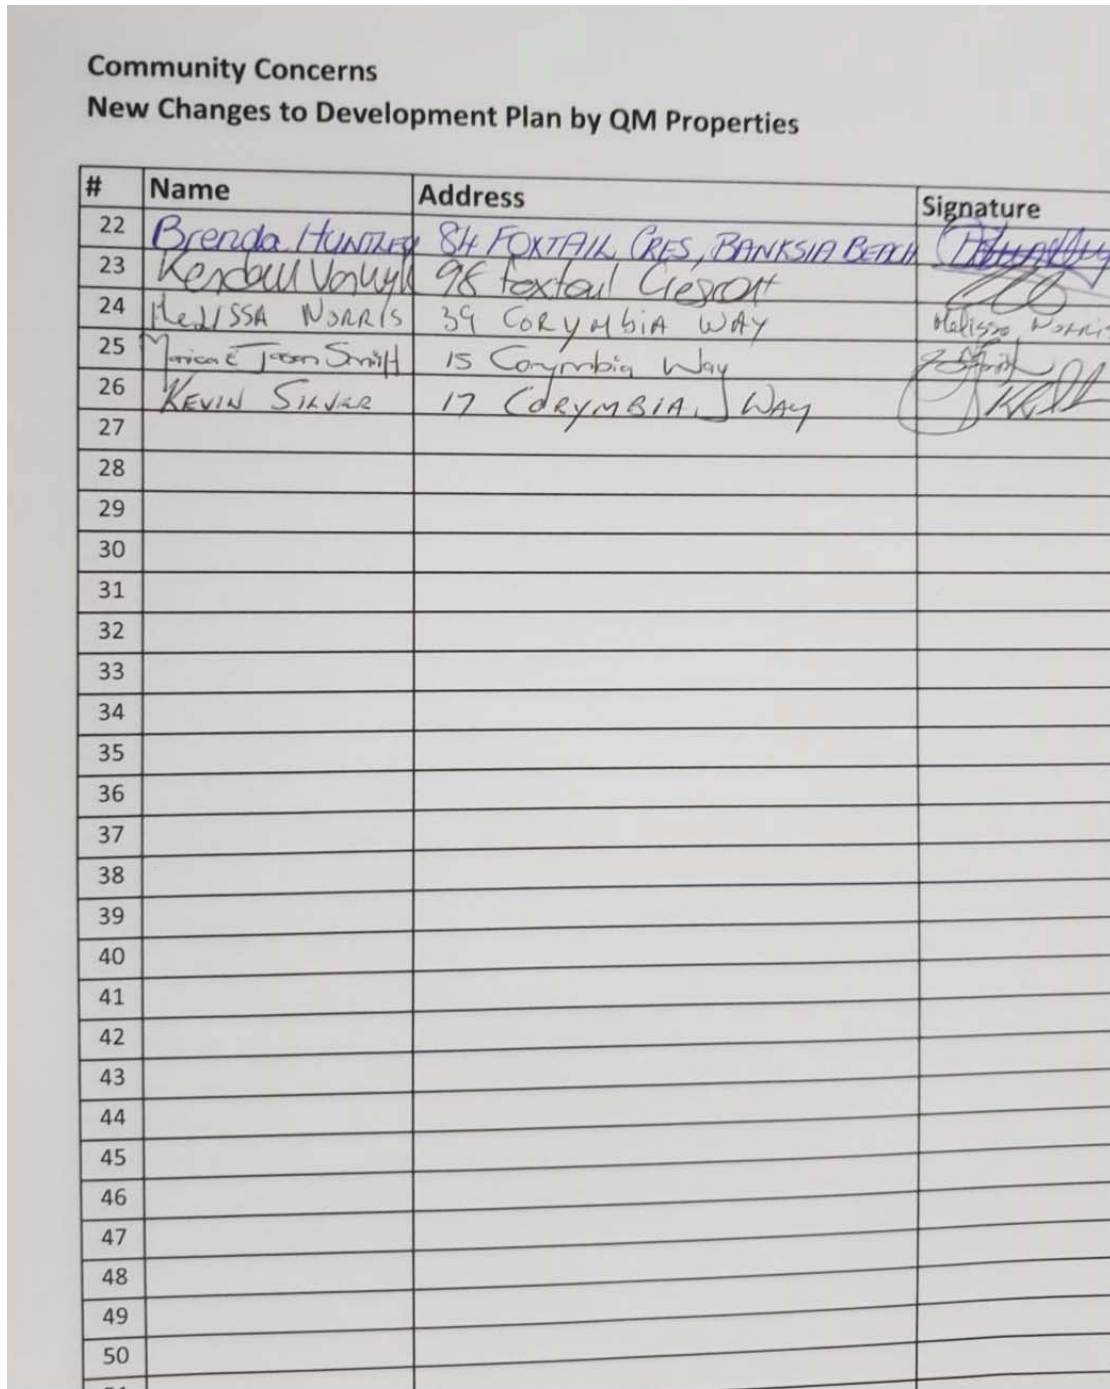 Community Concerns
New Changes to Development Plan by QM Properties
# Name Address Signature
22 Brenda HUNTLEY 84 FOXTAIL CRES, BANKSIA BEACH
23 Kendall 98 Foxtail Crescent
24 MELISSA NORRIS 39 CORYMBIA WAY Melissa Norris
25 Monica & Jason Smith 15 Corymbia Way
26 KEVIN SILVER 17 CORYMBIA WAY
27
28
29
30
31
32
33
34
35
36
37
38
39
40
41
42
43
44
45
46
47
48
49
50